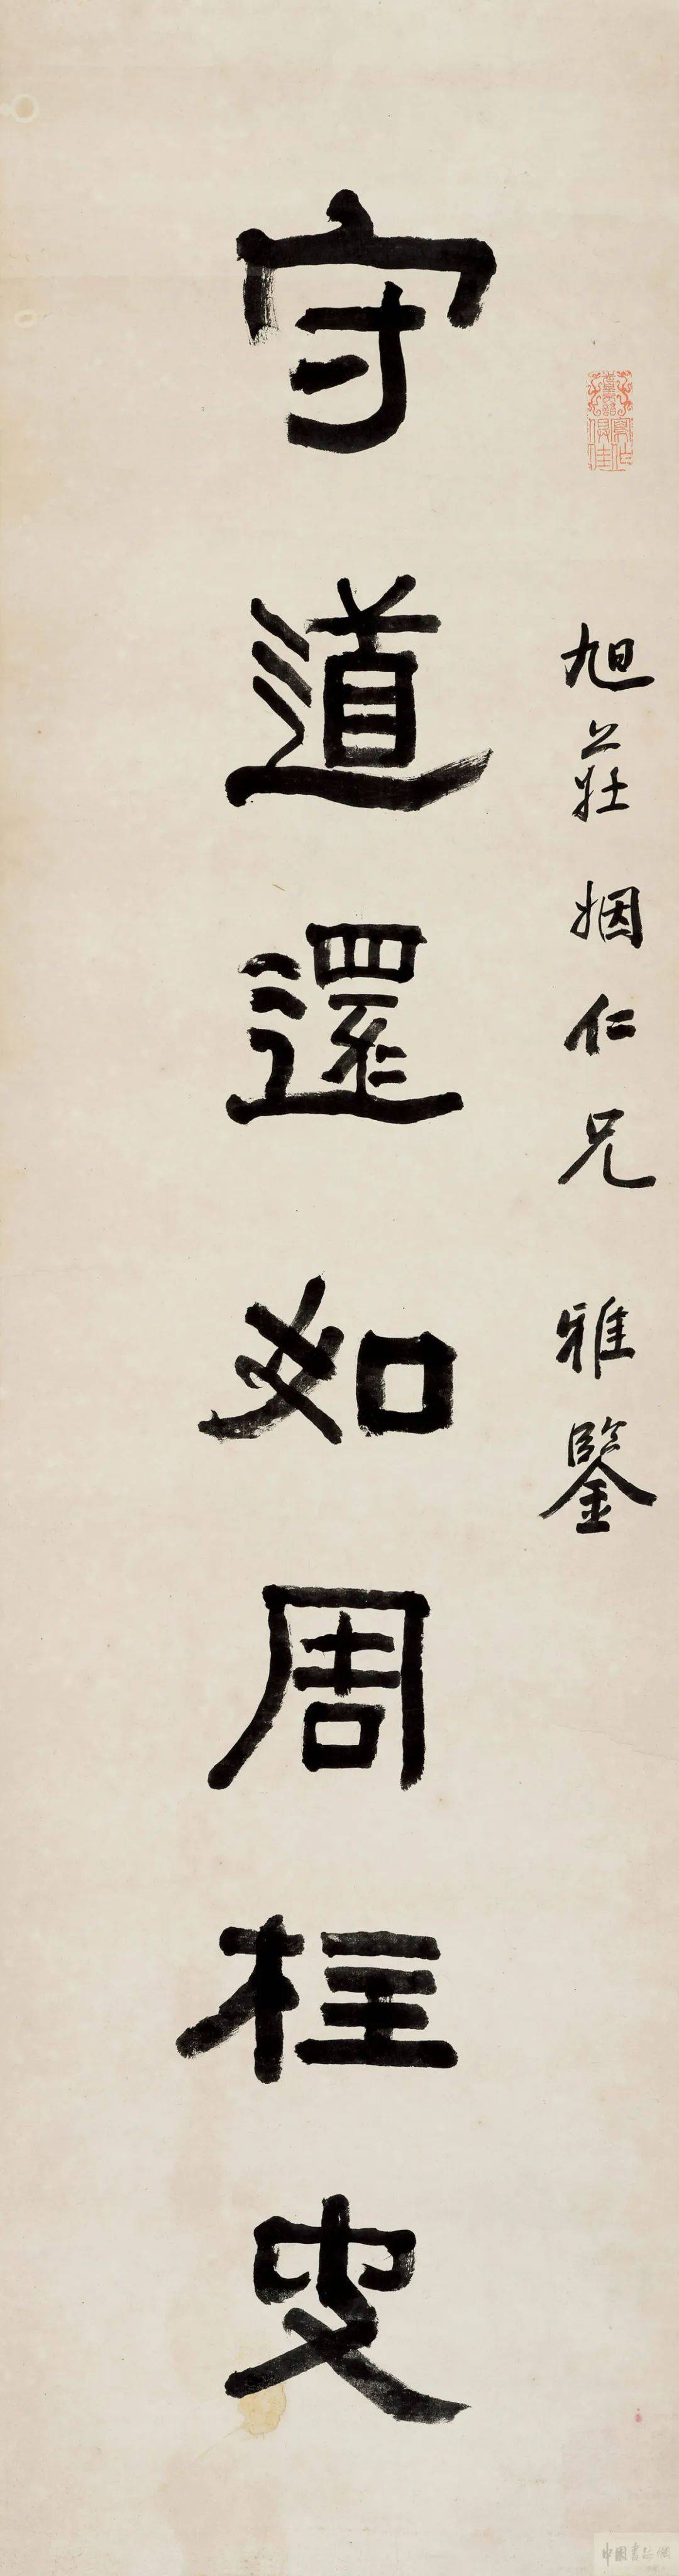 旭莊姻仁兄 雅鑒
守道還如周柱史
中国书法网